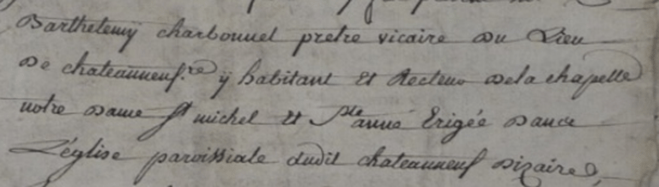 Barthelemÿ charbonnel pretre vicaire Du Lieu
De chateauneuf ÿ habitant Et Recteur Dela chapelle
notre Dame St michel Et Ste anne Erigée Dance
L'église paroissiale dudit chateauneuf